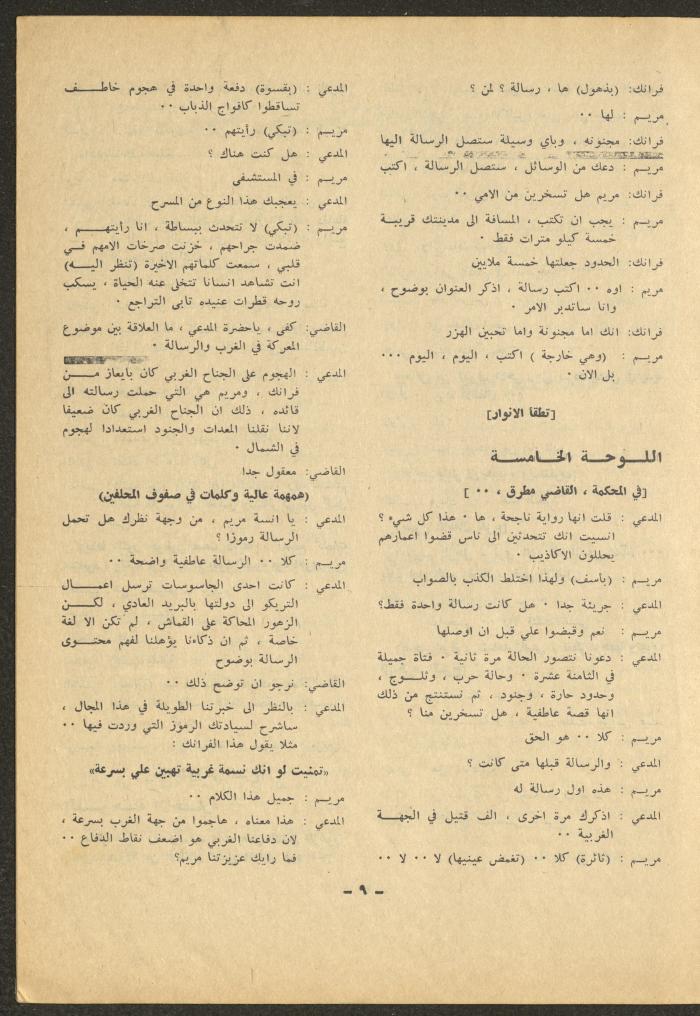 فرانك: (بذهول) ها ، رسالة ؟ لمن ؟
مريم : لها ٠٠
فرانك: مجنونه ، وباي وسيلة ستصل الرسالة اليها
مريم : دعك من الوسائل ، ستصل الرسالة ، اكتب
فرانك: مريم هل تسخرين من الامي ٠٠
مريم : يجب ان تكتب ، المسافة الى مدينتك قريبة
خمسة كيلو مترات فقط ٠
فرانك: الحدود جعلتها خمسة ملايين
مريم : اوه ٠٠ اكتب رسالة ، اذكر العنوان بوضوح ،
وانا ساتدبر الامر ٠
فرانك: انك اما مجنونة واما تحبين الهزر
مريم : (وهي خارجة ) اكتب ، اليوم ، اليوم ٠٠٠
بل الان ٠
[تطفا الانوار]
اللوحة الخامسة
[في المحكمة ، القاضي مطرق ، ٠٠ ]
المدعي : قلت انها رواية ناجحة ، ها ٠ هذا كل شيء ؟
انسيت انك تتحدثين الى ناس قضوا اعمارهم
يحللون الاكاذيب ٠
مريم : (باسف) ولهذا اختلط الكذب بالصواب
المدعي : جريئة جدا ٠ هل كانت رسالة واحدة فقط؟
مريم : نعم وقبضوا علي قبل ان اوصلها
المدعي : دعونا نتصور الحالة مرة ثانية ٠ فتاة جميلة
في الثامنة عشرة ٠ وحالة حرب ، وثلوج ،
وحدود حارة ، وجنود ، ثم نستنتج من ذلك
انها قصة عاطفية ، هل تسخرين منا ؟
مريم : كلا ٠٠ هو الحق
المدعي : والرسالة قبلها متى كانت ؟
مريم : هذه اول رسالة له
المدعي : اذكرك مرة اخرى ، الف قتيل في الجهة
الغربية ٠٠
مريم : (ثائرة) كلا ٠٠ (تغمض عينيها) لا ٠٠ لا ٠٠
المدعي : (بقسوة) دفعة واحدة في هجوم خاطف
تساقطوا كافواج الذباب ٠٠
مريم : (تبكي) رأيتهم ٠٠
المدعي : هل كنت هناك ؟
مريم : في المستشفى
المدعي : يعجبك هذا النوع من المسرح
مريم : (تبكي) لا تتحدث ببساطة ، انا رأيتهم ،
ضمدت جراحهم ، خزنت صرخات الامهم في
قلبي ، سمعت كلماتهم الاخيرة (تنظر اليه)
انت تشاهد انسانا تتخلى عنه الحياة ، يسكب
روحه قطرات عنيده تابى التراجع ٠
القاضي: كفى ، ياحضرة المدعي ، ما العلاقة بين موضوع
المعركة في الغرب والرسالة ٠
المدعي : الهجوم على الجناح الغربي كان بايعاز من
فرانك ، ومريم هي التي حملت رسالته الى
قائده ، ذلك ان الجناح الغربي كان ضعيفا
لاننا نقلنا المعدات والجنود استعدادا لهجوم
في الشمال ٠
القاضي: معقول جدا
(همهمة عالية وكلمات في صفوف المحلفين)
المدعي : يا انسة مريم ، من وجهة نظرك هل تحمل
الرسالة رموزا ؟
مريم : كلا ٠٠ الرسالة عاطفية واضحة ٠٠
المدعي : كانت احدى الجاسوسات ترسل اعمال
التريكو الى دولتها بالبريد العادي ، لكن
الزهور المحاكة على القماش ، لم تكن الا لغة
خاصة ، ثم ان ذكاءنا يؤهلنا لفهم محتوى
الرسالة بوضوح
القاضي: نرجو ان توضح ذلك ٠٠
المدعي : بالنظر الى خبرتنا الطويلة في هذا المجال ،
ساشرح لسيادتك الرموز التي وردت فيها ٠٠
مثلا يقول هذا الفرانك :
«تمنيت لو انك نسمة غربية تهبين علي بسرعة»
مريم : جميل هذا الكلام ٠٠
المدعي : هذا معناه ، هاجموا من جهة الغرب بسرعة ،
لان دفاعنا الغربي هو اضعف نقاط الدفاع ٠٠
فما رايك عزيزتنا مريم؟
- ٩ -